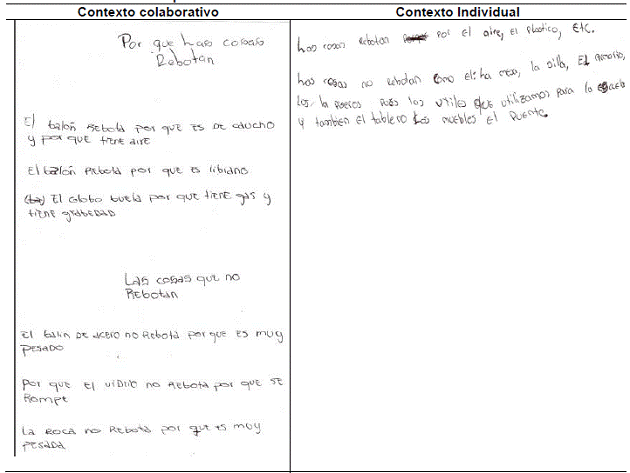 Contexto colaborativo
Por que has cosas
Rebotan
El balón Rebota por que es de caucho
y por que tiene aire
El balón Rebota por que es libiano
El Globo buela por que tiene gas y
tiene grabedad
Las cosas que no
Rebotan
El balin de acero no Rebota por que es muy
pesado
Por que El vidrio no Rebota por que se
Rompe
La Roca no Rebota por que es muy
pesada
Contexto Individual
has cosas rebotan por el aire, El plastico, Etc.
has cosas no rebotan como la silla, El
los utiles que utilizamos para la
y tambien el tablero los muebles el Puente